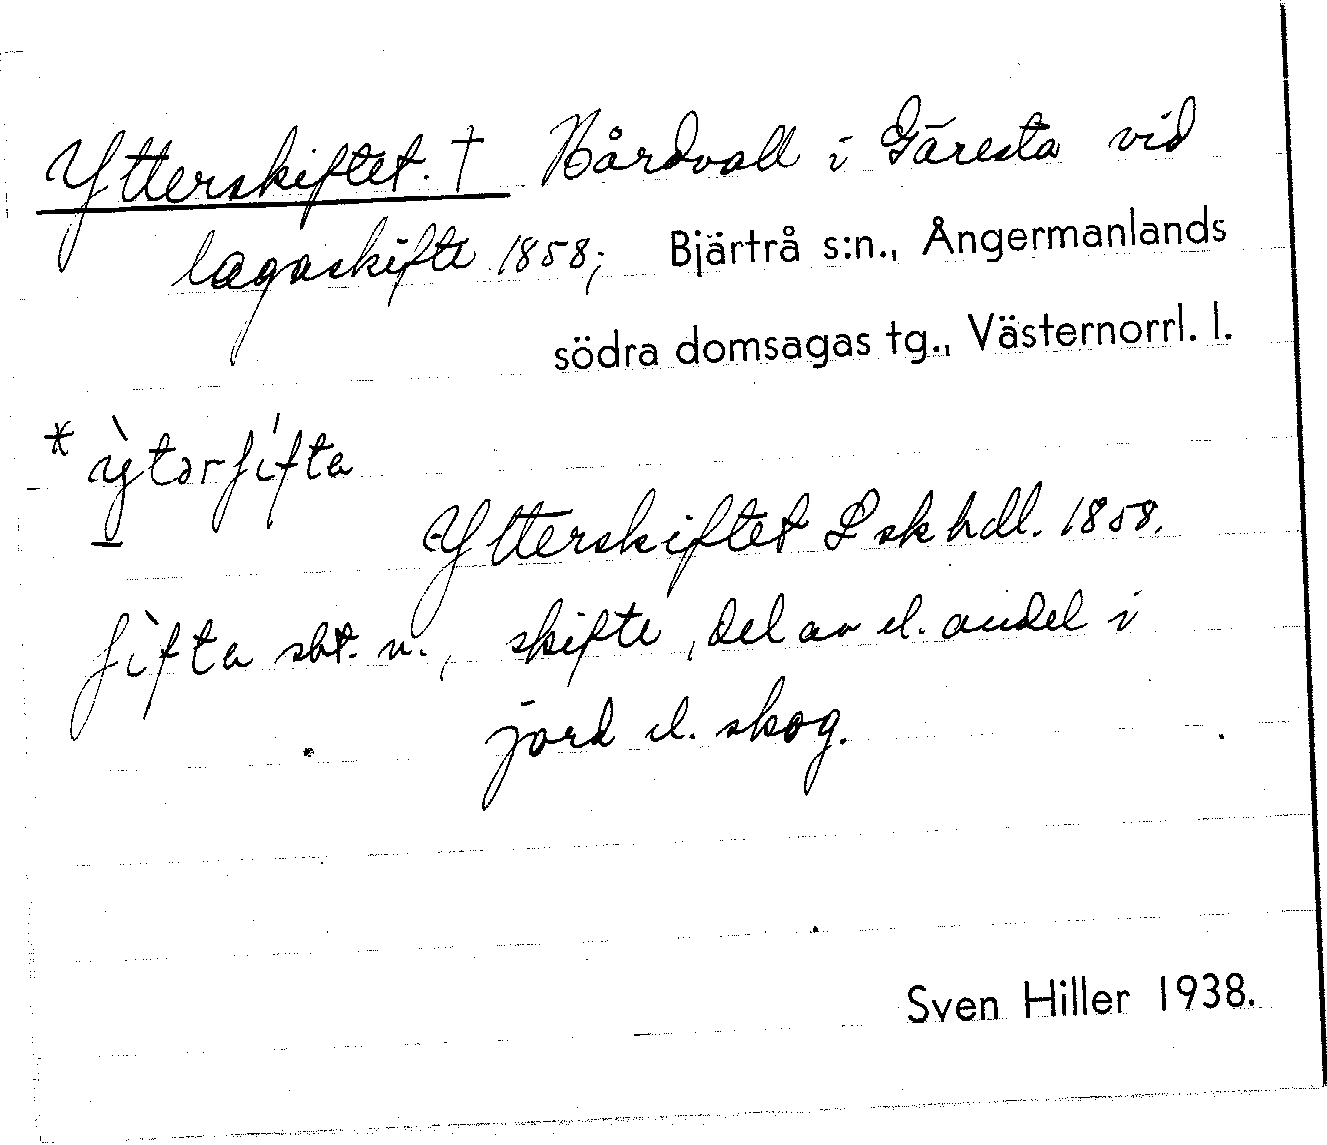 Ytterskiftet. † Hårdvall i Gäresta vid
lagaskifte 1858; Bjärtrå s:n., Ångermanlands
södra domsagas tg., Västernorrl. l.
* ỳtərʃífta
Ytterskiftet L sk hdl. 1858.
ʃìfta sbt. n., skifte, del av el. andel i
jord el. skog.
Sven Hiller 1938.